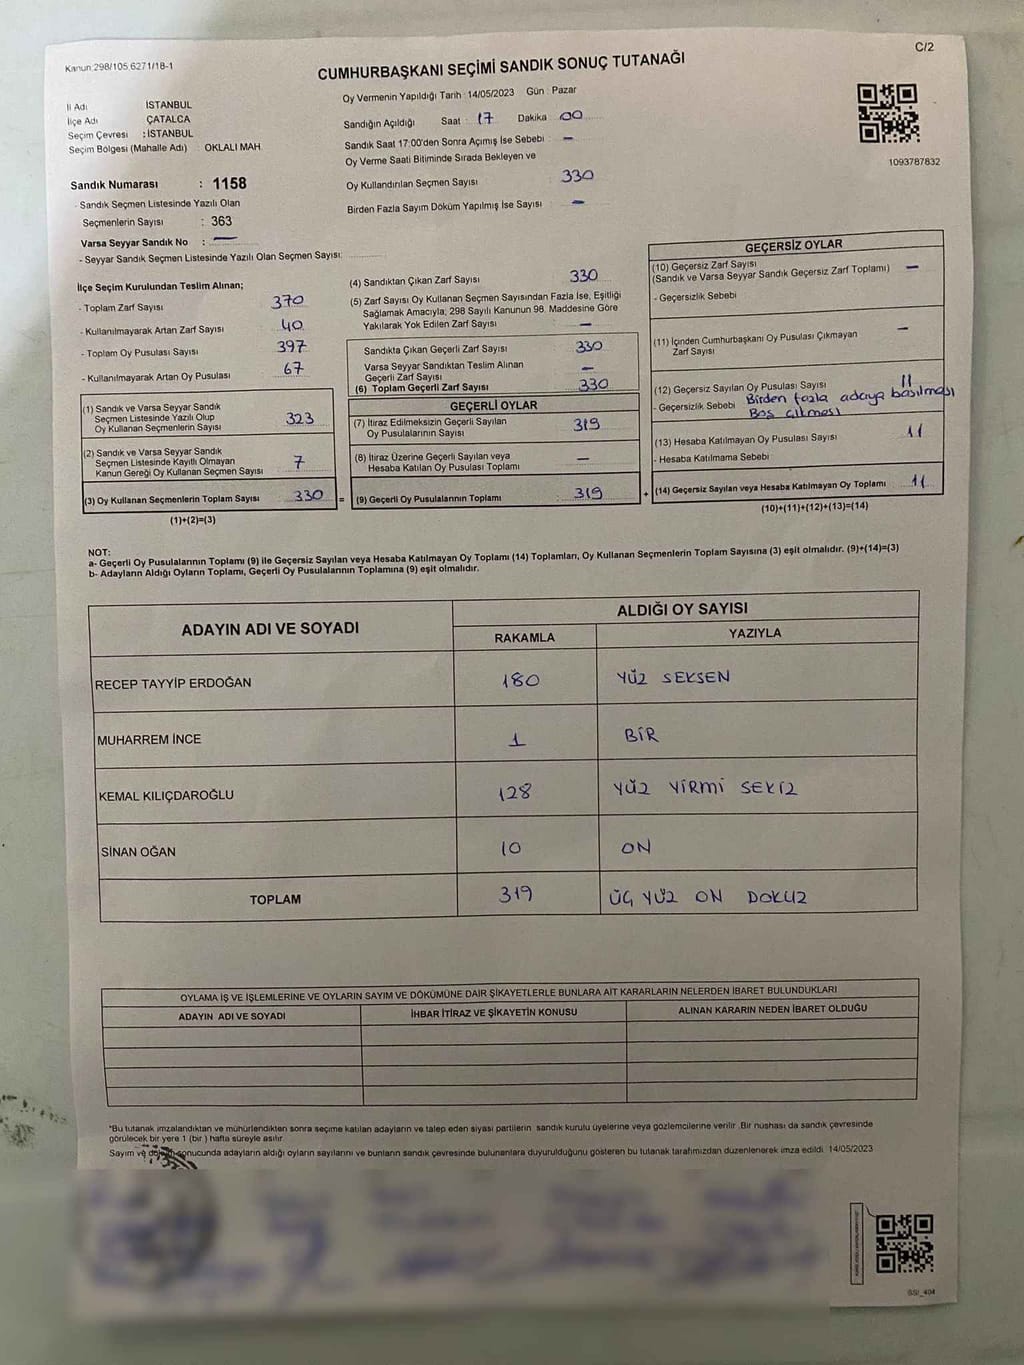 Kanun 298/105,6271/18-1
C/2
CUMHURBAŞKANI SEÇİMİ SANDIK SONUÇ TUTANAĞI
İl Adı İSTANBUL
İlçe Adı ÇATALCA
Seçim Çevresi : İSTANBUL
Seçim Bölgesi (Mahalle Adı) : OKLALI MAH.
Sandık Numarası : 1158
- Sandık Seçmen Listesinde Yazılı Olan
Seçmenlerin Sayısı : 363
Varsa Seyyar Sandık No : —
- Seyyar Sandık Seçmen Listesinde Yazılı Olan Seçmen Sayısı:
Oy Vermenin Yapıldığı Tarih : 14/05/2023 Gün : Pazar
Sandığın Açıldığı Saat : 17 Dakika 00
Sandık Saat 17:00'den Sonra Açımış İse Sebebi : —
Oy Verme Saati Bitiminde Sırada Bekleyen ve
Oy Kullandırılan Seçmen Sayısı : 330
Birden Fazla Sayım Döküm Yapılmış İse Sayısı : —
1093787832
İlçe Seçim Kurulundan Teslim Alınan;
- Toplam Zarf Sayısı 370
- Kullanılmayarak Artan Zarf Sayısı 40
- Toplam Oy Pusulası Sayısı 397
- Kullanılmayarak Artan Oy Pusulası 67
(1) Sandık ve Varsa Seyyar Sandık
Seçmen Listesinde Yazılı Olup
Oy Kullanan Seçmenlerin Sayısı 323
(2) Sandık ve Varsa Seyyar Sandık
Seçmen Listesinde Kayıtlı Olmayan
Kanun Gereği Oy Kullanan Seçmen Sayısı 7
(3) Oy Kullanan Seçmenlerin Toplam Sayısı 330 =
(1)+(2)=(3)
(4) Sandıktan Çıkan Zarf Sayısı 330
(5) Zarf Sayısı Oy Kullanan Seçmen Sayısından Fazla İse, Eşitliği
Sağlamak Amacıyla, 298 Sayılı Kanunun 98. Maddesine Göre
Yakılarak Yok Edilen Zarf Sayısı —
Sandıkta Çıkan Geçerli Zarf Sayısı 330
Varsa Seyyar Sandıktan Teslim Alınan
Geçerli Zarf Sayısı —
(6) Toplam Geçerli Zarf Sayısı 330
GEÇERLİ OYLAR
(7) İtiraz Edilmeksizin Geçerli Sayılan
Oy Pusulalarının Sayısı 319
(8) İtiraz Üzerine Geçerli Sayılan veya
Hesaba Katılan Oy Pusulası Toplamı —
(9) Geçerli Oy Pusulalarının Toplamı 319 +
GEÇERSİZ OYLAR
(10) Geçersiz Zarf Sayısı
(Sandık ve Varsa Seyyar Sandık Geçersiz Zarf Toplamı) —
- Geçersizlik Sebebi
(11) İçinden Cumhurbaşkanı Oy Pusulası Çıkmayan
Zarf Sayısı —
(12) Geçersiz Sayılan Oy Pusulası Sayısı 11
- Geçersizlik Sebebi Birden fazla adaya basılması
Boş çıkması
(13) Hesaba Katılmayan Oy Pusulası Sayısı 11
- Hesaba Katılmama Sebebi
(14) Geçersiz Sayılan veya Hesaba Katılmayan Oy Toplamı 11
(10)+(11)+(12)+(13)=(14)
NOT:
a- Geçerli Oy Pusulalarının Toplamı (9) ile Geçersiz Sayılan veya Hesaba Katılmayan Oy Toplamı (14) Toplamları, Oy Kullanan Seçmenlerin Toplam Sayısına (3) eşit olmalıdır. (9)+(14)=(3)
b- Adayların Aldığı Oyların Toplamı, Geçerli Oy Pusulalarının Toplamına (9) eşit olmalıdır.
ADAYIN ADI VE SOYADI
ALDIĞI OY SAYISI
RAKAMLA YAZIYLA
RECEP TAYYİP ERDOĞAN 180 YÜZ SEKSEN
MUHARREM İNCE 1 BİR
KEMAL KILIÇDAROĞLU 128 YÜZ YİRMİ SEKİZ
SİNAN OĞAN 10 ON
TOPLAM 319 ÜÇ YÜZ ON DOKUZ
OYLAMA İŞ VE İŞLEMLERİNE VE OYLARIN SAYIM VE DÖKÜMÜNE DAİR ŞİKAYETLERLE BUNLARA AİT KARARLARIN NELERDEN İBARET BULUNDUKLARI
ADAYIN ADI VE SOYADI İHBAR İTİRAZ VE ŞİKAYETİN KONUSU ALINAN KARARIN NEDEN İBARET OLDUĞU
*Bu tutanak imzalandıktan ve mühürlendikten sonra seçime katılan adayların ve talep eden siyasi partilerin sandık kurulu üyelerine veya gözlemcilerine verilir. Bir nüshası da sandık çevresinde
görülecek bir yere 1 (bir) hafta süreyle asılır.
Sayım ve döküm sonucunda adayların aldığı oyların sayılarını ve bunların sandık çevresinde bulunanlara duyurulduğunu gösteren bu tutanak tarafımızdan düzenlenerek imza edildi. 14/05/2023
SSI_404